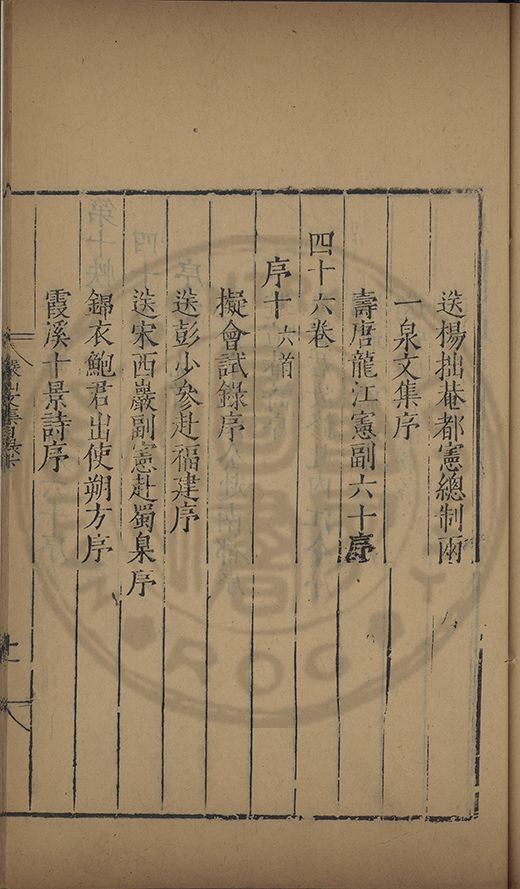 送楊拙菴都憲總制兩
一泉文集序
壽唐龍江憲副六十序
四十六卷
序十六首
擬會試錄序
送彭少參赴福建序
送宋西巖副憲赴蜀臬序
錦衣鮑君出使朔方序
霞溪十景詩序